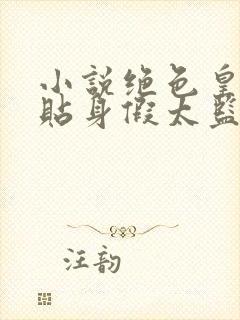 小説绝色皇
貼身假太監
汪韵